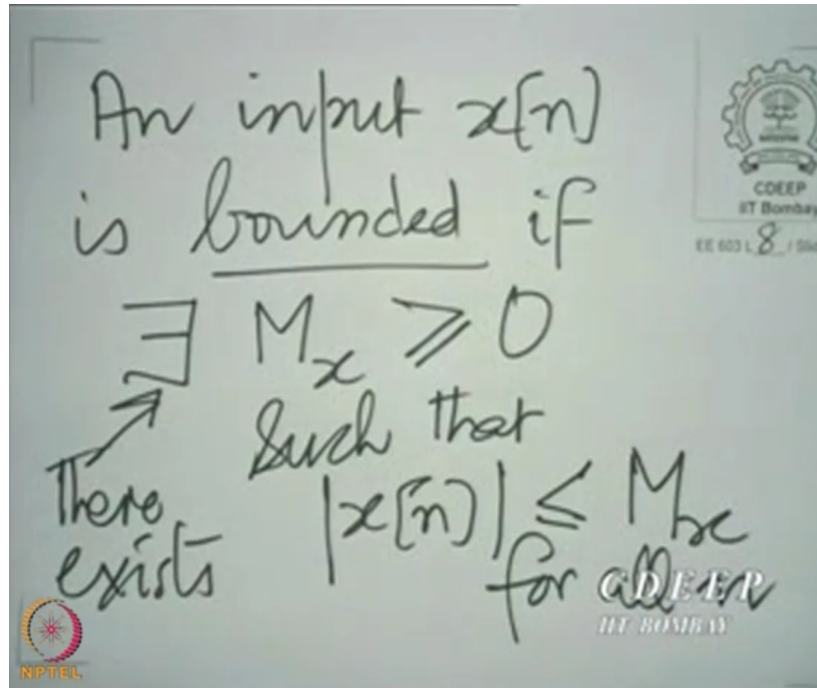 An input x[n]
is bounded if
∃ Mₓ ≥ 0
such that
|x[n]| ≤ Mₓ
for all n
There
exists
CDEEP
IIT Bombay
EE 603 L 8 / Sli
CDEEP
IIT BOMBAY
NPTEL